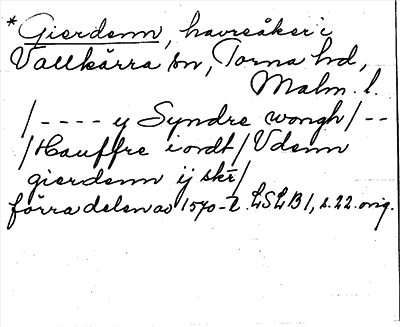 *Gierdenn, havreåker i
Vallkärra sn, Torna hd,
Malm. l.
/ - - - - y Syndre wongh / - -
/ Hauffre iordt / Vdenn
gierdenn ij skr /
förra delen av 1570-t. LSLB 1, s. 22. orig.